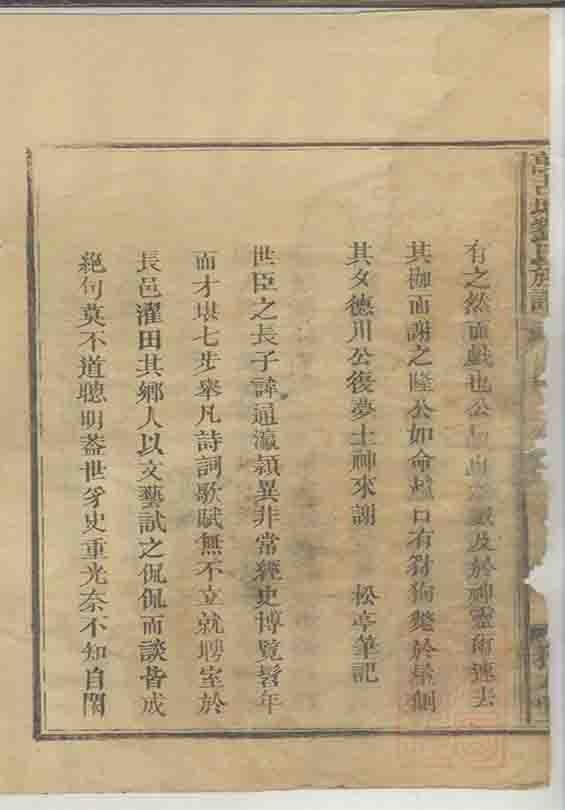 劉氏族譜
有之然而戲也公 及於神靈術速去
其枷而謝之隆公如命 口有 狗斃於 側
其父德川公復夢土神來謝 松亭筆記
世臣之長子諱通瀛穎異非常經史博覽髫年
而才堪七步舉凡詩詞歌賦無不立就聘室於
長邑濯田其鄉人以文藝試之侃侃而談皆成
絕句莫不道聰明蓋世豸史重光奈不知自閑